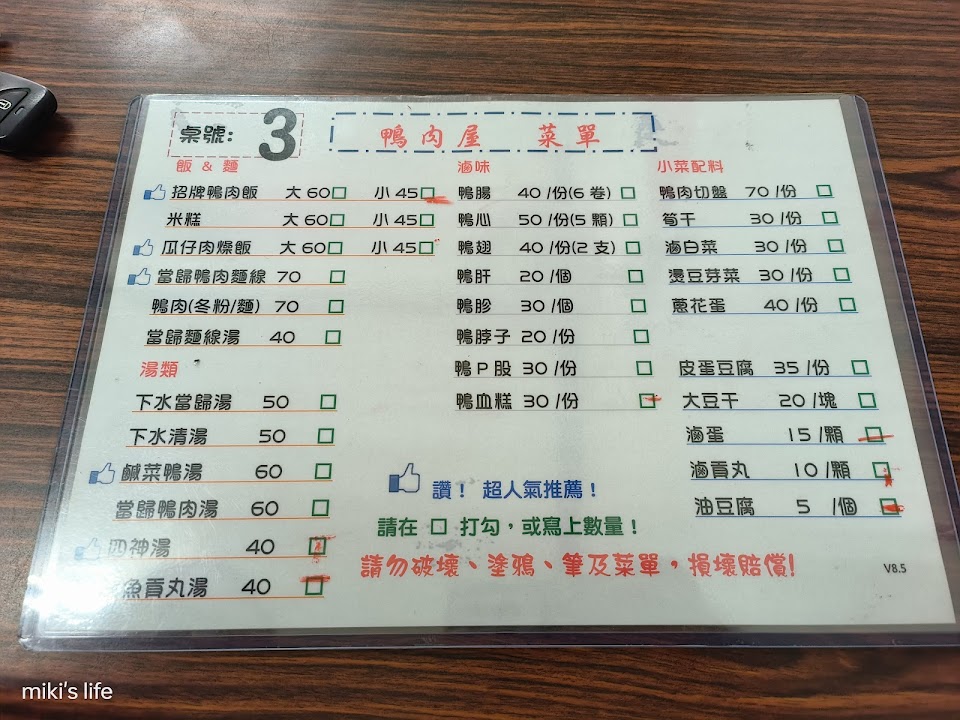 桌號: 3
鴨肉屋 菜單
飯 & 麵
招牌鴨肉飯 大 60 小 45
米糕 大 60 小 45
瓜仔肉燥飯 大 60 小 45
當歸鴨肉麵線 70
鴨肉(冬粉/麵) 70
當歸麵線湯 40
湯類
下水當歸湯 50
下水清湯 50
鹹菜鴨湯 60
當歸鴨肉湯 60
四神湯 40
魚貢丸湯 40
滷味
鴨腸 40 /份(6 卷)
鴨心 50 /份(5 顆)
鴨翅 40 /份(2 支)
鴨肝 20 /個
鴨胗 30 /個
鴨脖子 20 /份
鴨 P 股 30 /份
鴨血糕 30 /份
小菜配料
鴨肉切盤 70 /份
筍干 30 /份
滷白菜 30 /份
燙豆芽菜 30 /份
蔥花蛋 40 /份
皮蛋豆腐 35 /份
大豆干 20 /塊
滷蛋 15 /顆
滷貢丸 10 /顆
油豆腐 5 /個
讚! 超人氣推薦!
請在 □ 打勾,或寫上數量!
請勿破壞、塗鴉、筆及菜單,損壞賠償!
V8.5
miki's life